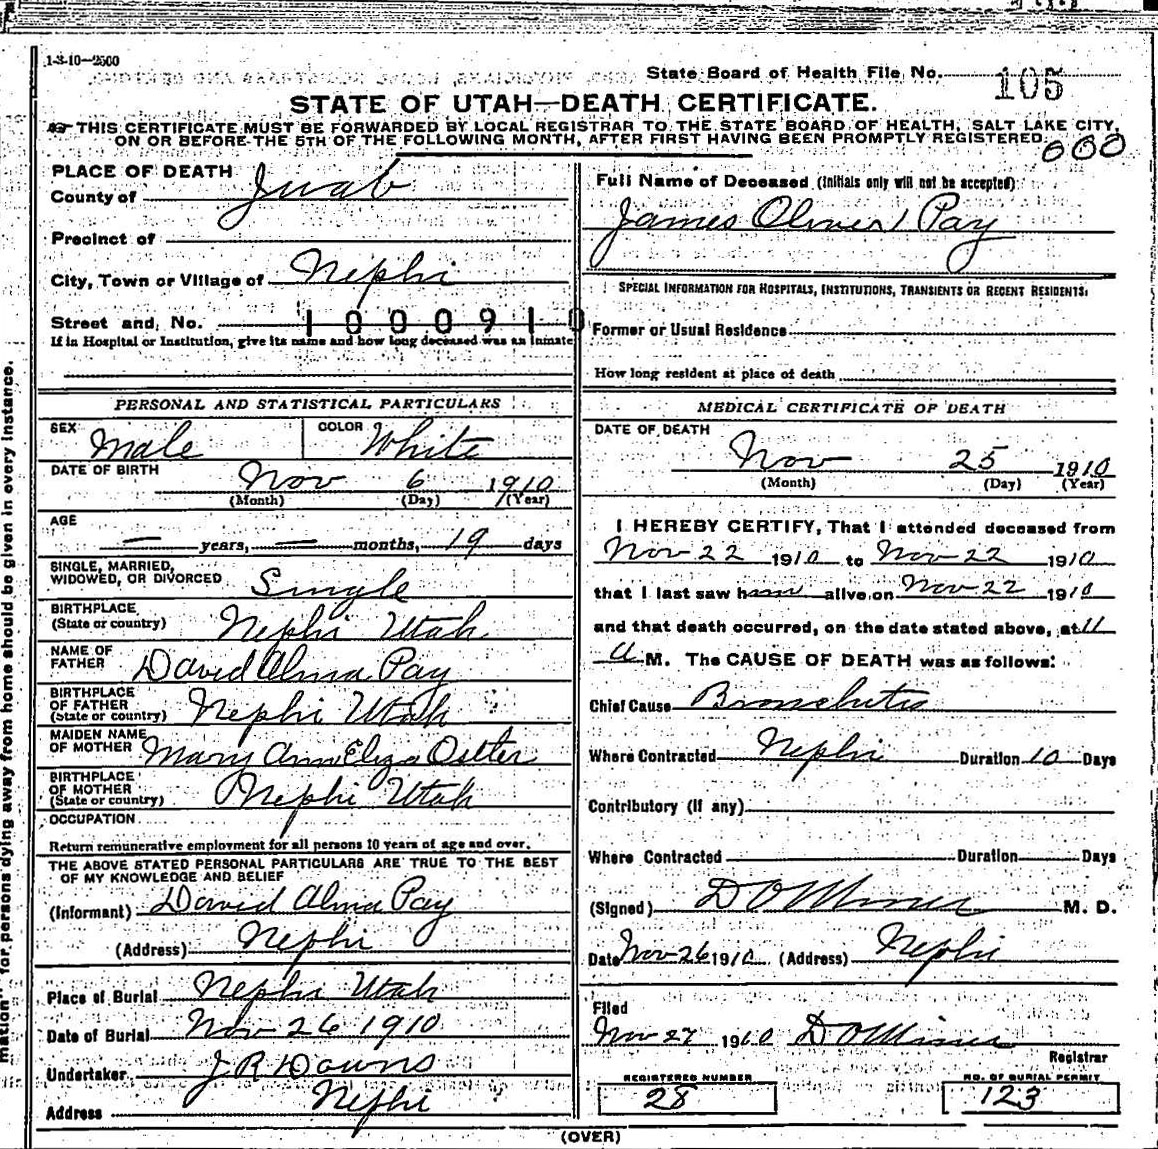 1-3-10—2500
State Board of Health File No. 105
STATE OF UTAH—DEATH CERTIFICATE.
THIS CERTIFICATE MUST BE FORWARDED BY LOCAL REGISTRAR TO THE STATE BOARD OF HEALTH, SALT LAKE CITY,
ON OR BEFORE THE 5TH OF THE FOLLOWING MONTH, AFTER FIRST HAVING BEEN PROMPTLY REGISTERED.
000
PLACE OF DEATH
County of Juab
Precinct of
City, Town or Village of Nephi
Street and No. 1000910
If in Hospital or Institution, give its name and how long deceased was an inmate
PERSONAL AND STATISTICAL PARTICULARS
SEX Male COLOR White
DATE OF BIRTH Nov 6 1910
(Month) (Day) (Year)
AGE
— years, — months, 19 days
SINGLE, MARRIED,
WIDOWED, OR DIVORCED Single
BIRTHPLACE
(State or country) Nephi Utah
NAME OF
FATHER David Alma Pay
BIRTHPLACE
OF FATHER
(State or country) Nephi Utah
MAIDEN NAME
OF MOTHER Mary Ann Eliza Ostler
BIRTHPLACE
OF MOTHER
(State or country) Nephi Utah
OCCUPATION
Return remunerative employment for all persons 10 years of age and over.
THE ABOVE STATED PERSONAL PARTICULARS ARE TRUE TO THE BEST
OF MY KNOWLEDGE AND BELIEF
(Informant) David Alma Pay
(Address) Nephi
Place of Burial Nephi Utah
Date of Burial Nov 26 1910
Undertaker J R Downs
Address Nephi
Full Name of Deceased (Initials only will not be accepted)
James Olmer Pay
SPECIAL INFORMATION FOR HOSPITALS, INSTITUTIONS, TRANSIENTS OR RECENT RESIDENTS:
Former or Usual Residence
How long resident at place of death
MEDICAL CERTIFICATE OF DEATH
DATE OF DEATH
Nov 25 1910
(Month) (Day) (Year)
I HEREBY CERTIFY, That I attended deceased from
Nov 22 1910 to Nov 22 1910
that I last saw him alive on Nov 22 1910
and that death occurred, on the date stated above, at 11
A M. The CAUSE OF DEATH was as follows:
Chief Cause Bronchitis
Where Contracted Nephi Duration 10 Days
Contributory (If any)
Where Contracted Duration Days
(Signed) D O Miner M. D.
Date Nov 26 1910 (Address) Nephi
Filed
Nov 27 1910 D O Miner
Registrar
REGISTERED NUMBER
28
NO. OF BURIAL PERMIT
123
(OVER)
mation" for persons dying away from home should be given in every instance.